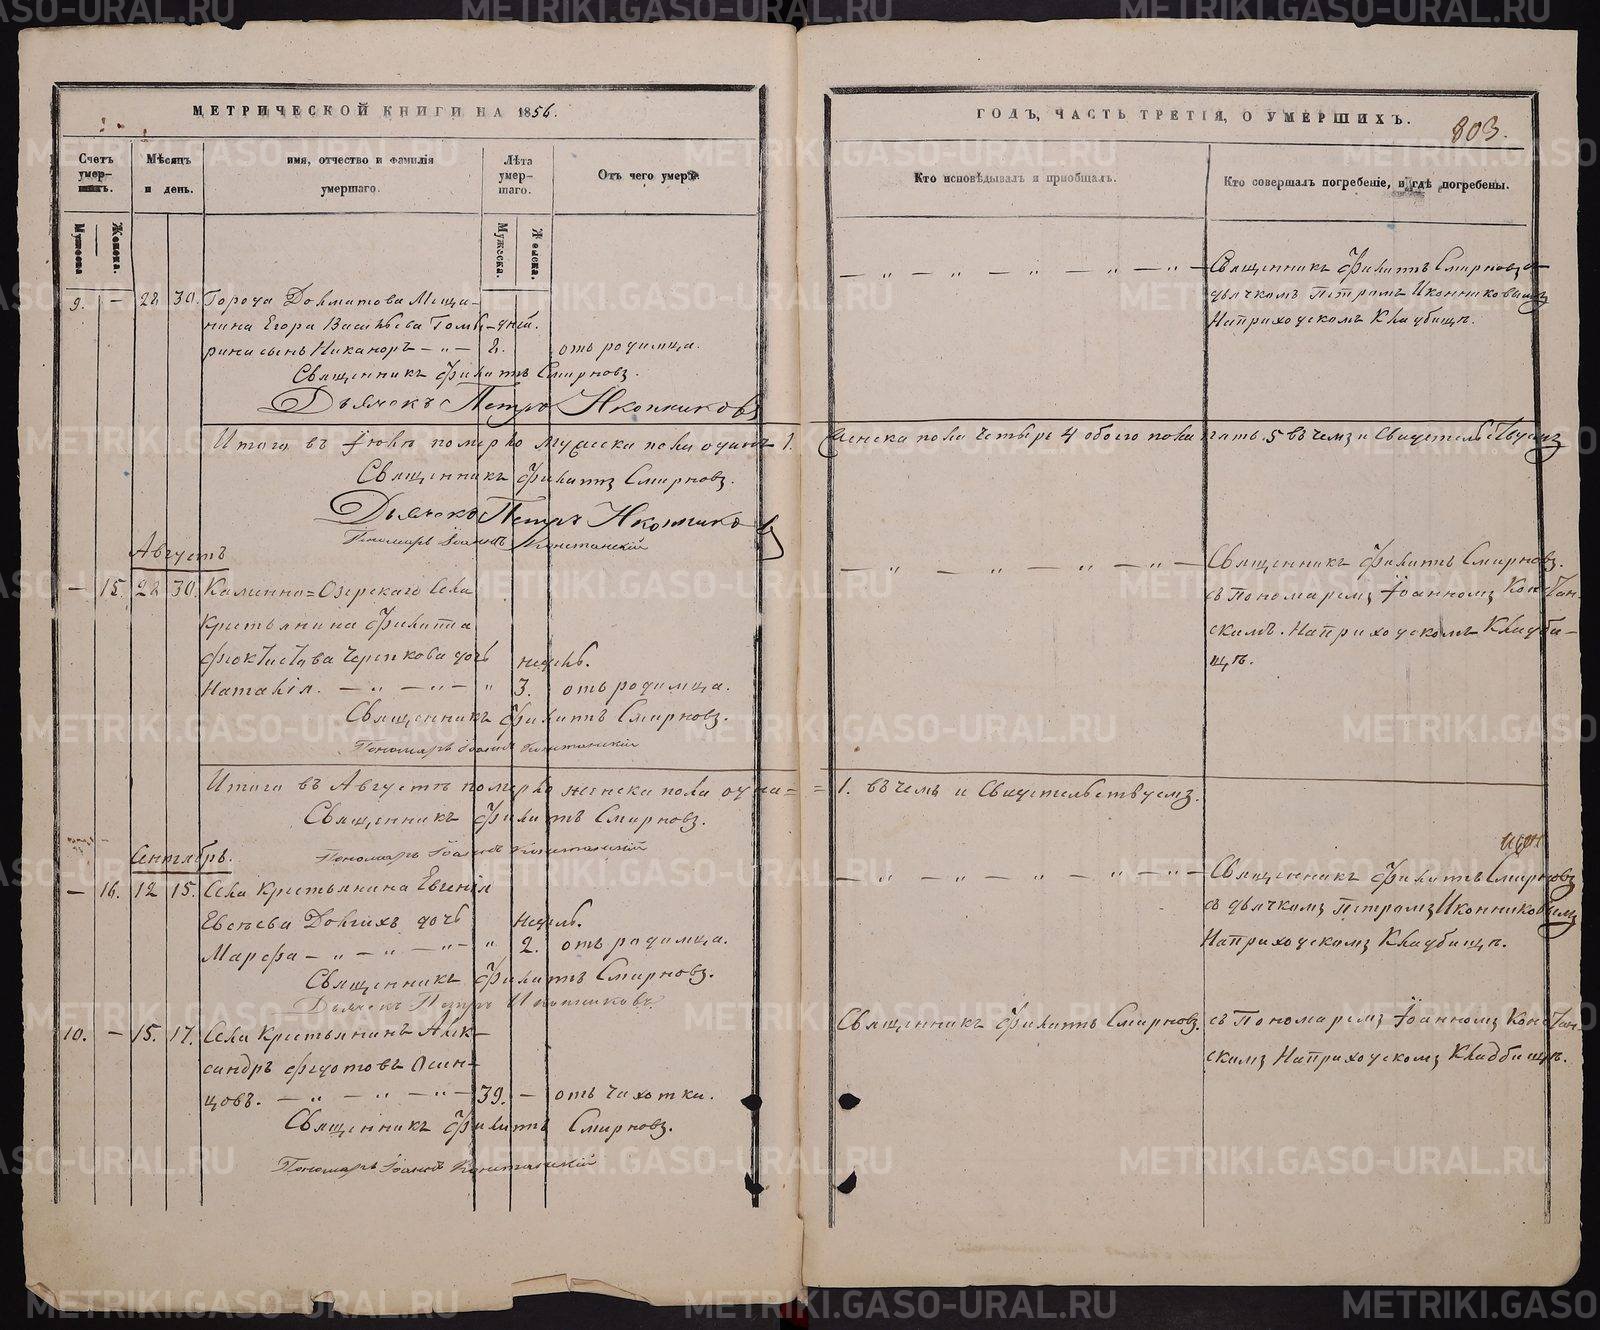 МЕТРИЧЕСКОЙ КНИГИ НА 1856.
Счетъ умер-
шихъ.
Мѣсяцъ
и день.
имя, отчество и фамилія
умершаго.
Лѣта
умер-
шаго.
Отъ чего умеръ
Мужеска
Женска.
Мужеска.
Женска.
9. — 28 30. Города Долматова Мѣща-
нина Егора Васильева
дней.
сынъ Никаноръ — „ — 8. отъ родимца.
Священникъ Филиппъ Смирновъ.
Дьячекъ Петръ Иконниковъ
Итого въ Іюлѣ померло мужеска пола одинъ 1.
Священникъ Филиппъ Смирновъ.
Дьячекъ Петръ Иконниковъ
Пономарь Іоаннъ
Августъ
— 15. 28 30. Калинно=Озерскаго Села
Крестьянина Филиппа
Феоктистова Черепкова дочь недѣль.
Наталія. — „ — „ — „ 3. отъ родимца.
Священникъ Филиппъ Смирновъ.
Пономарь Іоаннъ
Итого въ Августѣ померло женска пола одна=
Священникъ Филиппъ Смирновъ.
Сентябрь.
Пономарь Іоаннъ
— 16. 12 15. Села Крестьянина Евгенія
Евсѣева Долгихъ дочь недѣль.
Марфа — „ — „ — „ — „ 2. отъ родимца.
Священникъ Филиппъ Смирновъ.
Дьячекъ Петръ Иконниковъ
10. — 15. 17. Села Крестьянинъ Алек-
сандръ Федотовъ Осин-
цовъ. — „ — „ — „ — 39. — отъ чахотки.
Священникъ Филиппъ Смирновъ.
Пономарь Іоаннъ
ГОДЪ, ЧАСТЬ ТРЕТІЯ, О УМЕРШИХЪ.
803.
Кто исповѣдывалъ и пріобщалъ.
Кто совершалъ погребеніе, и гдѣ погребены.
— „ — „ — „ — „ — „ — Священникъ Филиппъ Смирновъ съ
дьячкомъ Петромъ Иконниковымъ
На приходскомъ Кладбищѣ.
женска пола четыре 4 обоего пола пять. 5 въ чемъ и Свидетельствуемъ
— „ — „ — „ — „ — Священникъ Филиппъ Смирновъ.
съ Пономаремъ Іоанномъ Констан-
скимъ. На приходскомъ Кладби-
щѣ.
= 1. въ чемъ и Свидетельствуемъ.
— „ — „ — „ — „ — Священникъ Филиппъ Смирновъ
съ дьячкомъ Петромъ Иконниковымъ
На приходскомъ Кладбищѣ.
Священникъ Филиппъ Смирновъ. съ Пономаремъ Іоанномъ Констан-
скимъ На приходскомъ Кладбищѣ.
METRIKI.GASO-URAL.RU